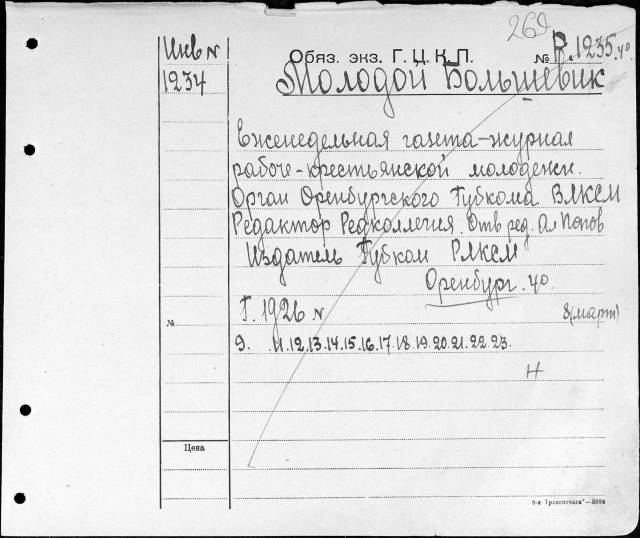 269
Инв N
1234
Обяз. экз. Г. Ц. К. П. № Р. 1235. 40
Молодой Большевик
Еженедельная газета-журнал
рабоче-крестьянской молодежи.
Орган Оренбургского Губкома ВЛКСМ
Редактор Редколлегия. Отв ред. Ал Попов
Издатель Губком РЛКСМ
Оренбург. 40.
Г. 1926 N
8(март)
№
9. 11.12.13.14.15.16.17.18.19.20.21.22.23.
Н
Цена
8-я „Транспечать“—3884